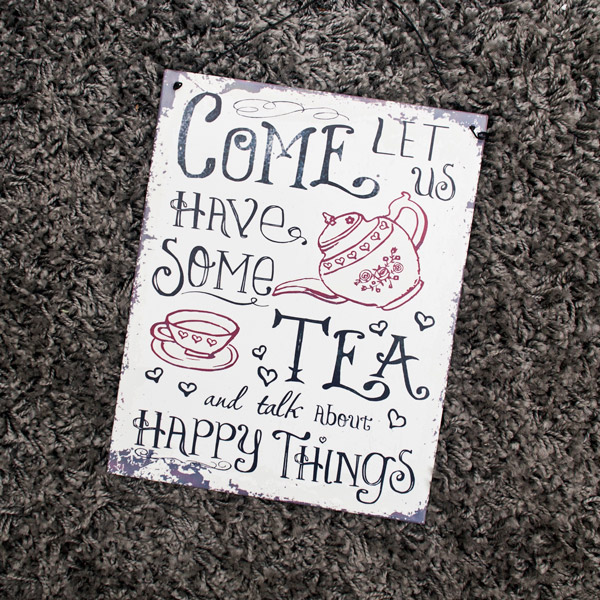 COME LET
US
HAVE
SOME
TEA
and talk About
HAPPY THiNGS